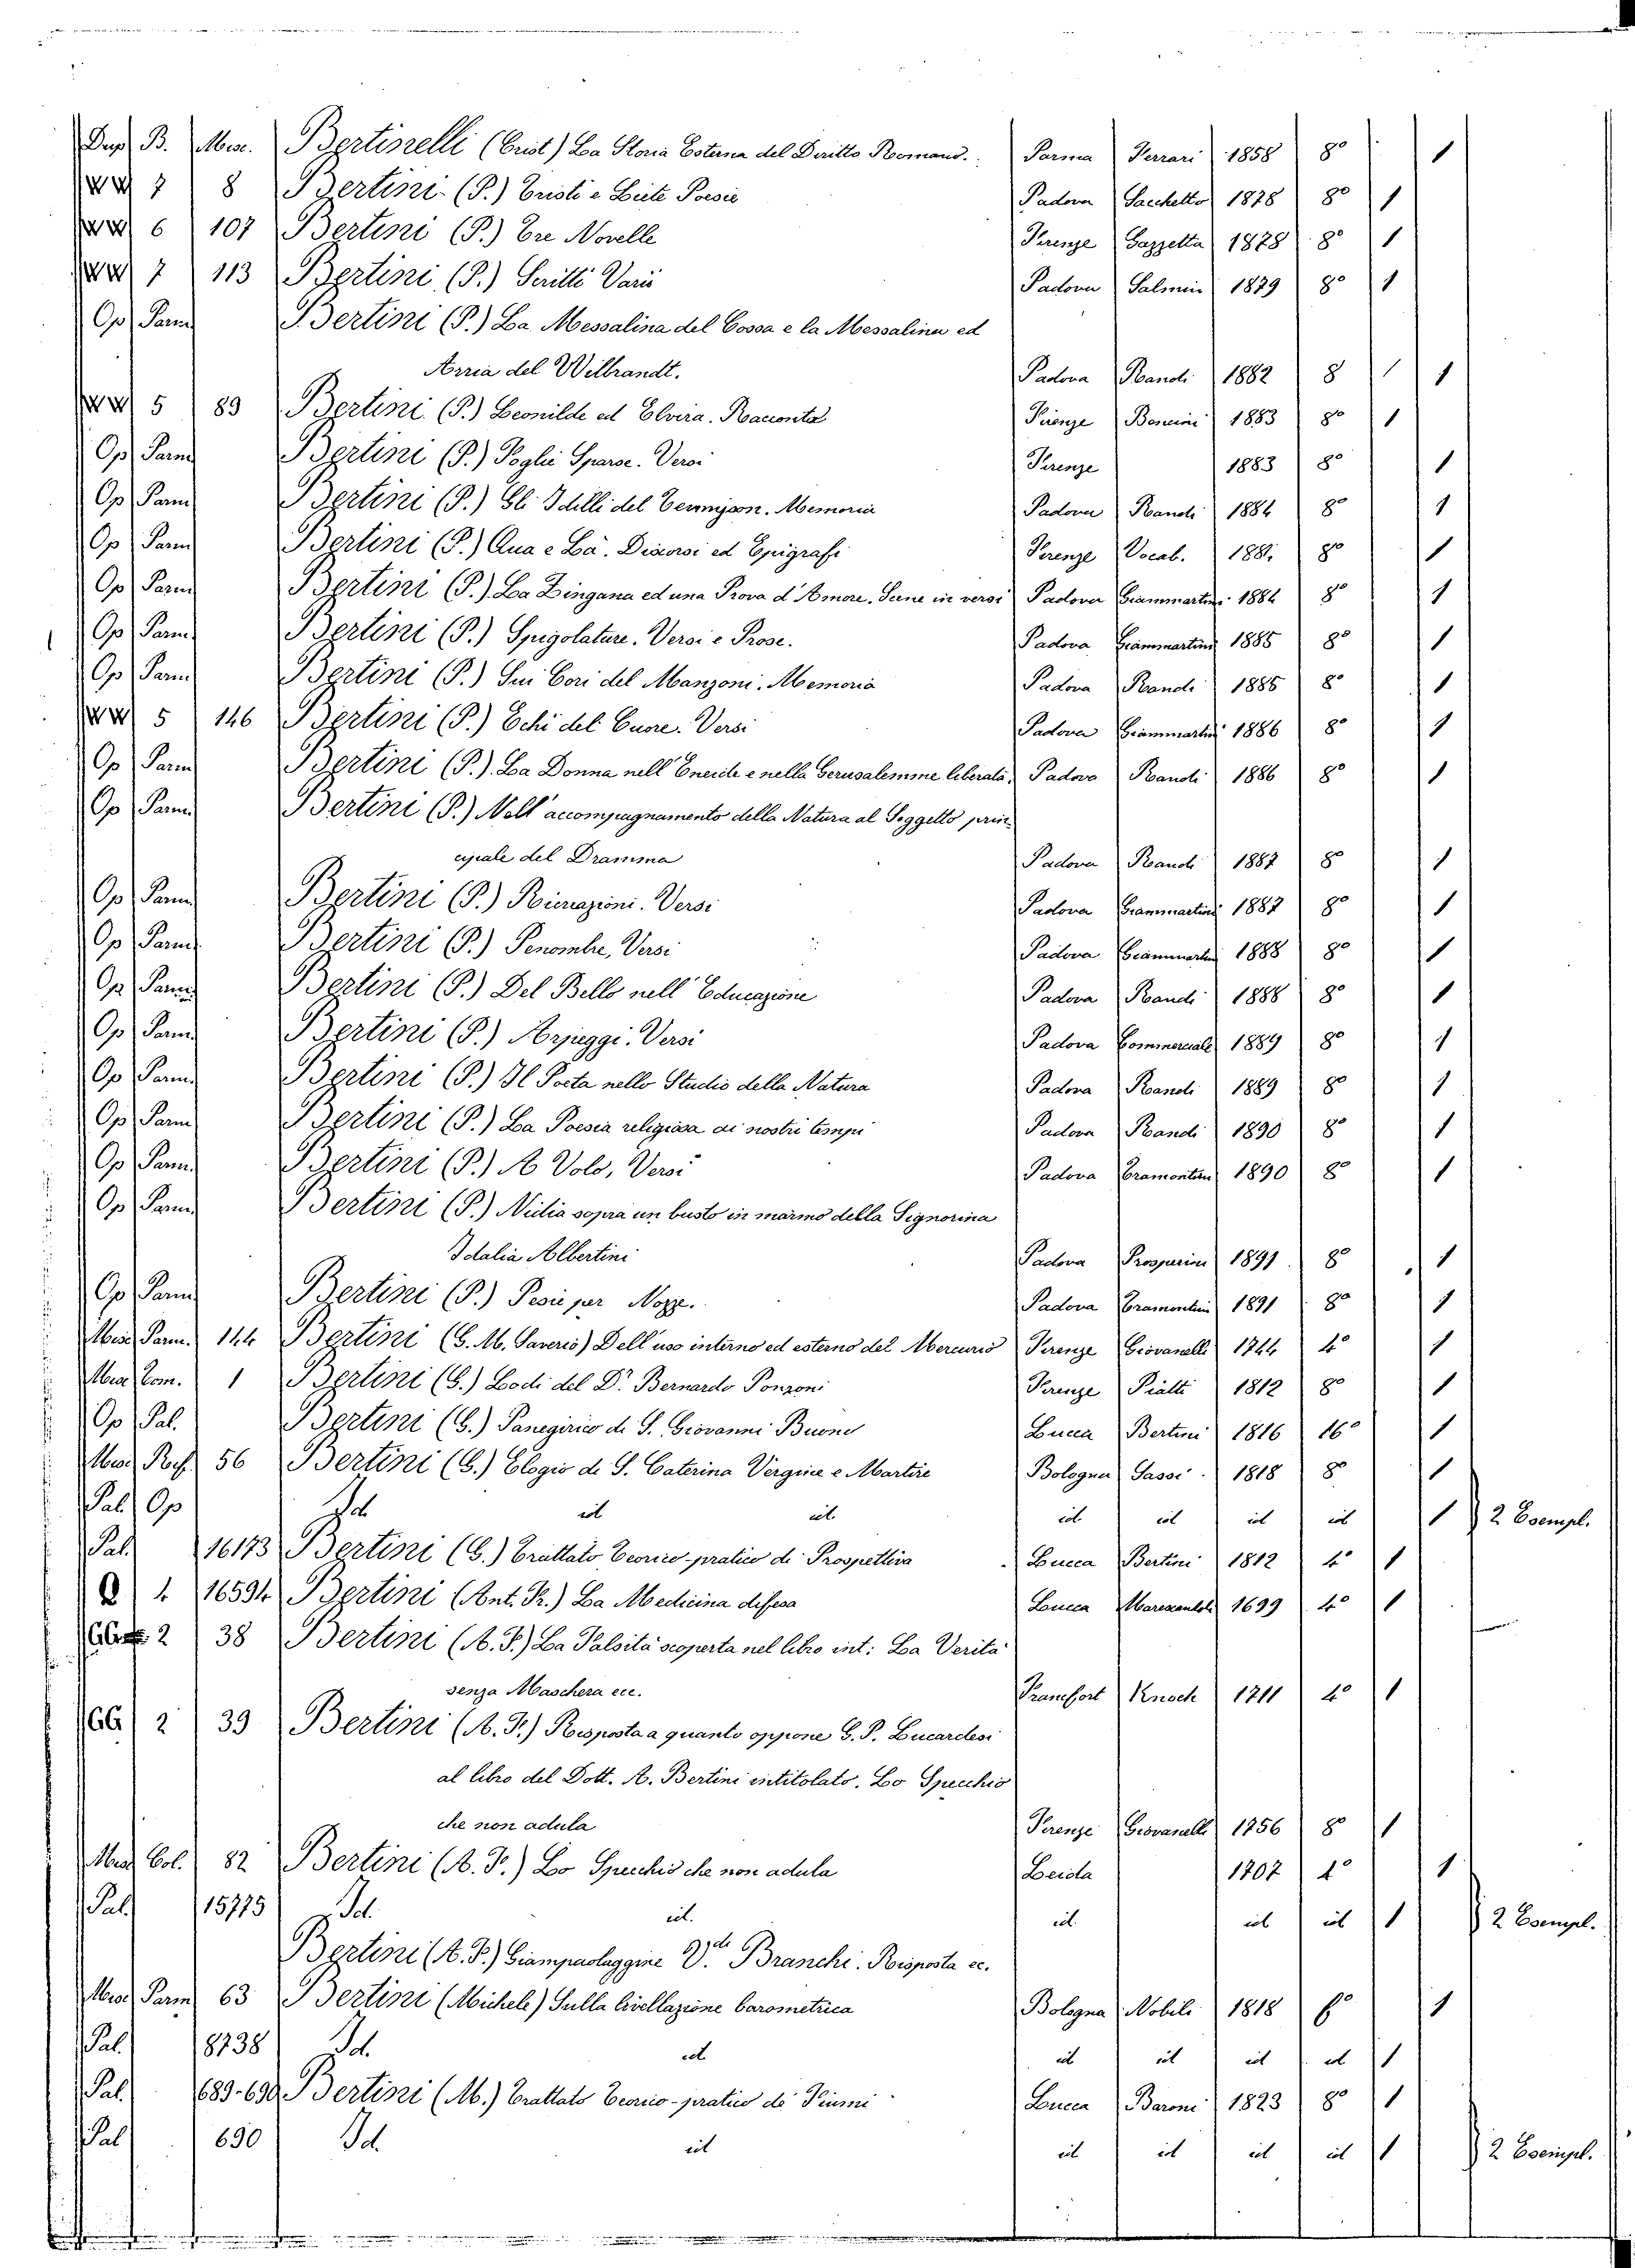 Dup B. Misc. Bertinelli (Crist) La Storia Esterna del Diritto Romano. Parma Ferrari 1858 8° 1
7 8 Bertini (P.) Tristi e Liete Poesie Padova Sacchetto 1878 8° 1
6 107 Bertini (P.) Tre Novelle Firenze Gazzetta 1878 8° 1
7 113 Bertini (P.) Scritti Varii Padova Salmin 1879 8° 1
Op Parm Bertini (P.) La Messalina del Cossa e la Messalina ed
Arria del Wilbrandt. Padova Randi 1882 8 1
5 89 Bertini (P.) Leonilde ed Elvira. Racconto Firenze Bencini 1883 8° 1
Op Parm Bertini (P.) Foglie Sparse. Versi Firenze 1883 8° 1
Op Parm Bertini (P.) Gli Idilli del Tennyson. Memoria Padova Randi 1884 8° 1
Op Parm Bertini (P.) Qua e Là. Discorsi ed Epigrafi Firenze Vocab. 188 8° 1
Op Parm Bertini (P.) La Zingana ed una Prova d'Amore. Scene in versi Padova Giammartini 1884 8° 1
Op Parm Bertini (P.) Spigolature. Versi e Prose. Padova Giammartini 1885 8° 1
Op Parm Bertini (P.) Sui Cori del Manzoni. Memoria Padova Randi 1885 8° 1
5 146 Bertini (P.) Echi del Cuore. Versi Padova Giammartini 1886 8° 1
Op Parm Bertini (P.) La Donna nell'Eneide e nella Gerusalemme liberata, Padova Randi 1886 8° 1
Op Parm Bertini (P.) Nell'accompagnamento della Natura al Soggetto prin
cipale del Dramma Padova Randi 1887 8° 1
Op Parm Bertini (P.) Ricreazioni. Versi Padova Giammartini 1887 8° 1
Op Parm Bertini (P.) Penombre, Versi Padova Giammartini 1888 8° 1
Op Parm Bertini (P.) Del Bello nell'Educazione Padova Randi 1888 8° 1
Op Parm Bertini (P.) Arpeggi. Versi Padova Commerciale 1889 8° 1
Op Parm Bertini (P.) Il Poeta nello Studio della Natura Padova Randi 1889 8° 1
Op Parm Bertini (P.) La Poesia religiosa ai nostri tempi Padova Randi 1890 8° 1
Op Parm Bertini (P.) A Volo, Versi Padova Cramontini 1890 8° 1
Op Parm Bertini (P.) Nidia sopra un busto in marmo della Signorina
Idalia Albertini Padova Prosperini 1891 8° 1
Op Parm Bertini (P.) Pesie per Nozze. Padova Cramontini 1891 8° 1
Misc Parm. 144 Bertini (G. M. Saverio) Dell'uso interno ed esterno del Mercurio Firenze Giovanelli 1744 4° 1
Misc Com. 1 Bertini (G.) Lodi del Dr. Bernardo Ponzoni Firenze Piatti 1812 8° 1
Op Pal. Bertini (G.) Panegirico di S. Giovanni Buono Lucca Bertini 1816 16° 1
Misc 56 Bertini (G.) Elogio di S. Caterina Vergine e Martire Bologna Sassi 1818 8° 1
Pal. Op Id. id id. id. id id id 1 2 Esempl.
Pal. 16173 Bertini (G.) Trattato Teorico-pratico di Prospettiva Lucca Bertini 1812 4° 1
Q 4 16594 Bertini (Ant. Fr.) La Medicina difesa Lucca Marescandoli 1699 4° 1
2 38 Bertini (A. F.) La Falsità scoperta nel libro int: La Verità
senza Maschera ecc. Francfort Knoch 1711 4° 1
GG 2 39 Bertini (A. F.) Risposta a quanto oppone G. P. Lucardesi
al libro del Dott. A. Bertini intitolato. Lo Specchio
che non adula Firenze Giovanelli 1756 8° 1
Misc Col. 82 Bertini (A. F.) Lo Specchio che non adula Leida 1707 4° 1
Pal. 15775 Id. id. id. id id 1 2 Esempl.
Bertini (A. F.) Giampaolaggine Vde Branchi. Risposta ec.
Misc Parm 63 Bertini (Michele) Sulla livellazione barometrica Bologna Nobili 1818 1
Pal. 8738 Id. id id id id id 1
Pal. 689-690 Bertini (M.) Trattato Teorico-pratico di Fiumi Lucca Baroni 1823 8° 1
Pal. 690 Id. id id id id id 1 2 Esempl.